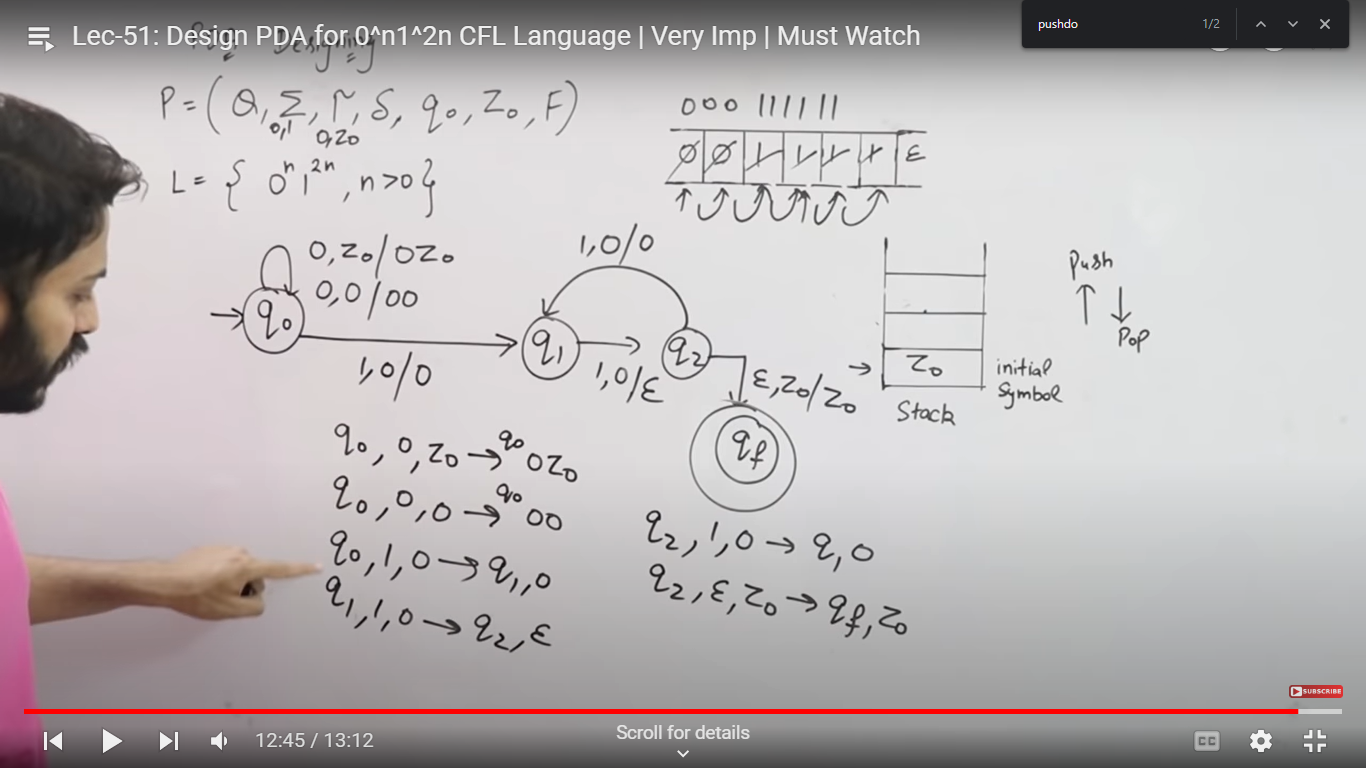 Lec-51: Design PDA for 0^n1^2n CFL Language | Very Imp | Must Watch
pushdo 1/2
Designing
P = (Q, Σ, Γ, δ, q₀, Z₀, F)
0,1 0,Z₀
L = { 0ⁿ1²ⁿ, n>0 }
000 111111
0 0 1 1 1 1 ε
0,Z₀/0Z₀
0,0/00
1,0/0
q₀
q₁
q₂
1,0/0
1,0/ε
ε,Z₀/Z₀
qf
Push
Pop
Z₀
initial
Symbol
Stack
q₀, 0, Z₀ → q₀ 0Z₀
q₀, 0, 0 → q₀ 00
q₀, 1, 0 → q₁, 0
q₁, 1, 0 → q₂, ε
q₂, 1, 0 → q, 0
q₂, ε, Z₀ → qf, Z₀
SUBSCRIBE
12:45 / 13:12
Scroll for details
CC